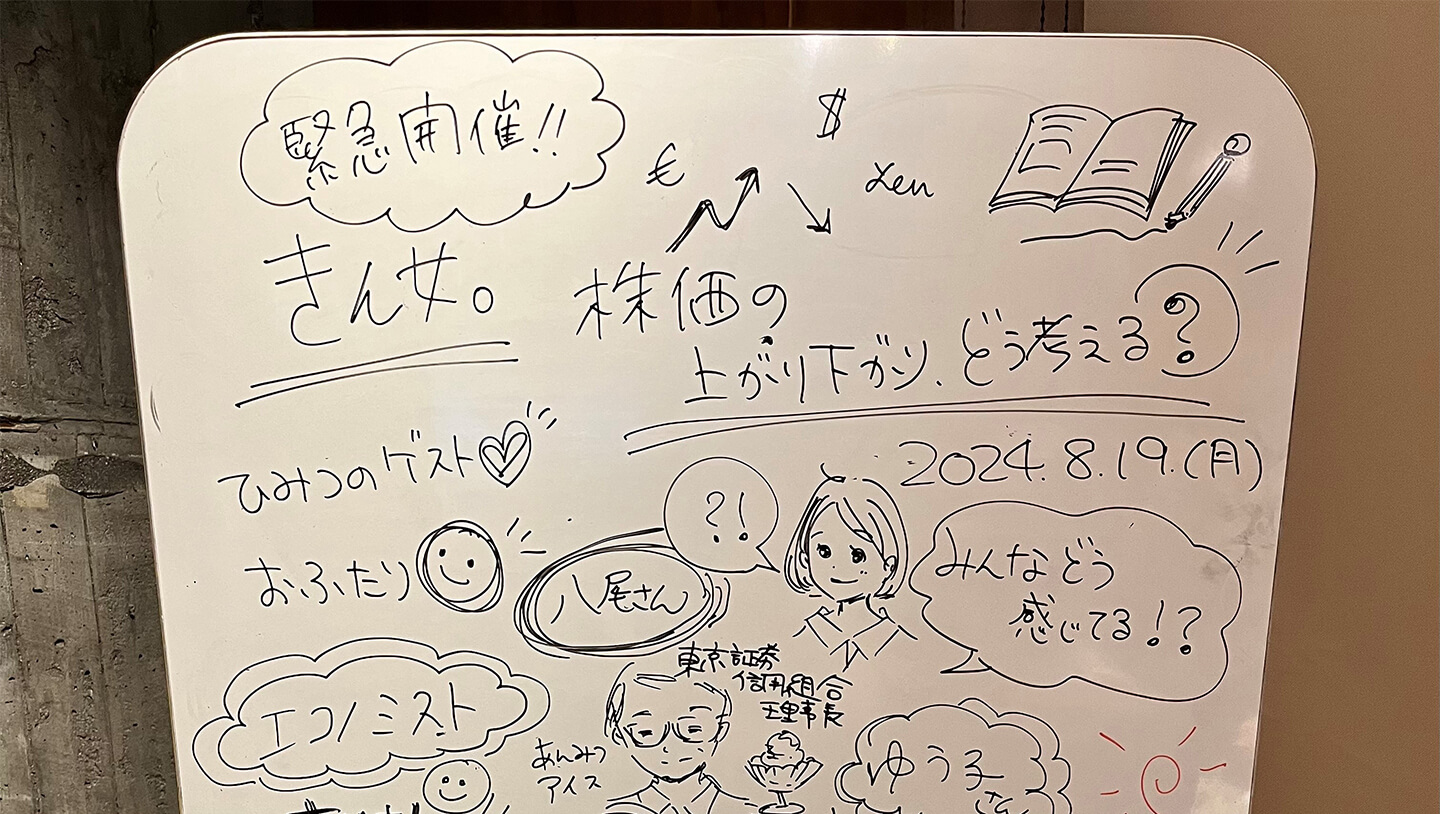 緊急開催!!
€
$
Yen
きん女。
株価の
上がり下がり、どう考える?
ひみつのゲスト
2024.8.19.(月)
おふたり
八尾さん
?!
みんなどう
感じてる!?
東京証券
信用組合
理事長
エコノミスト
あんみつ
アイス
ゆう子
さん